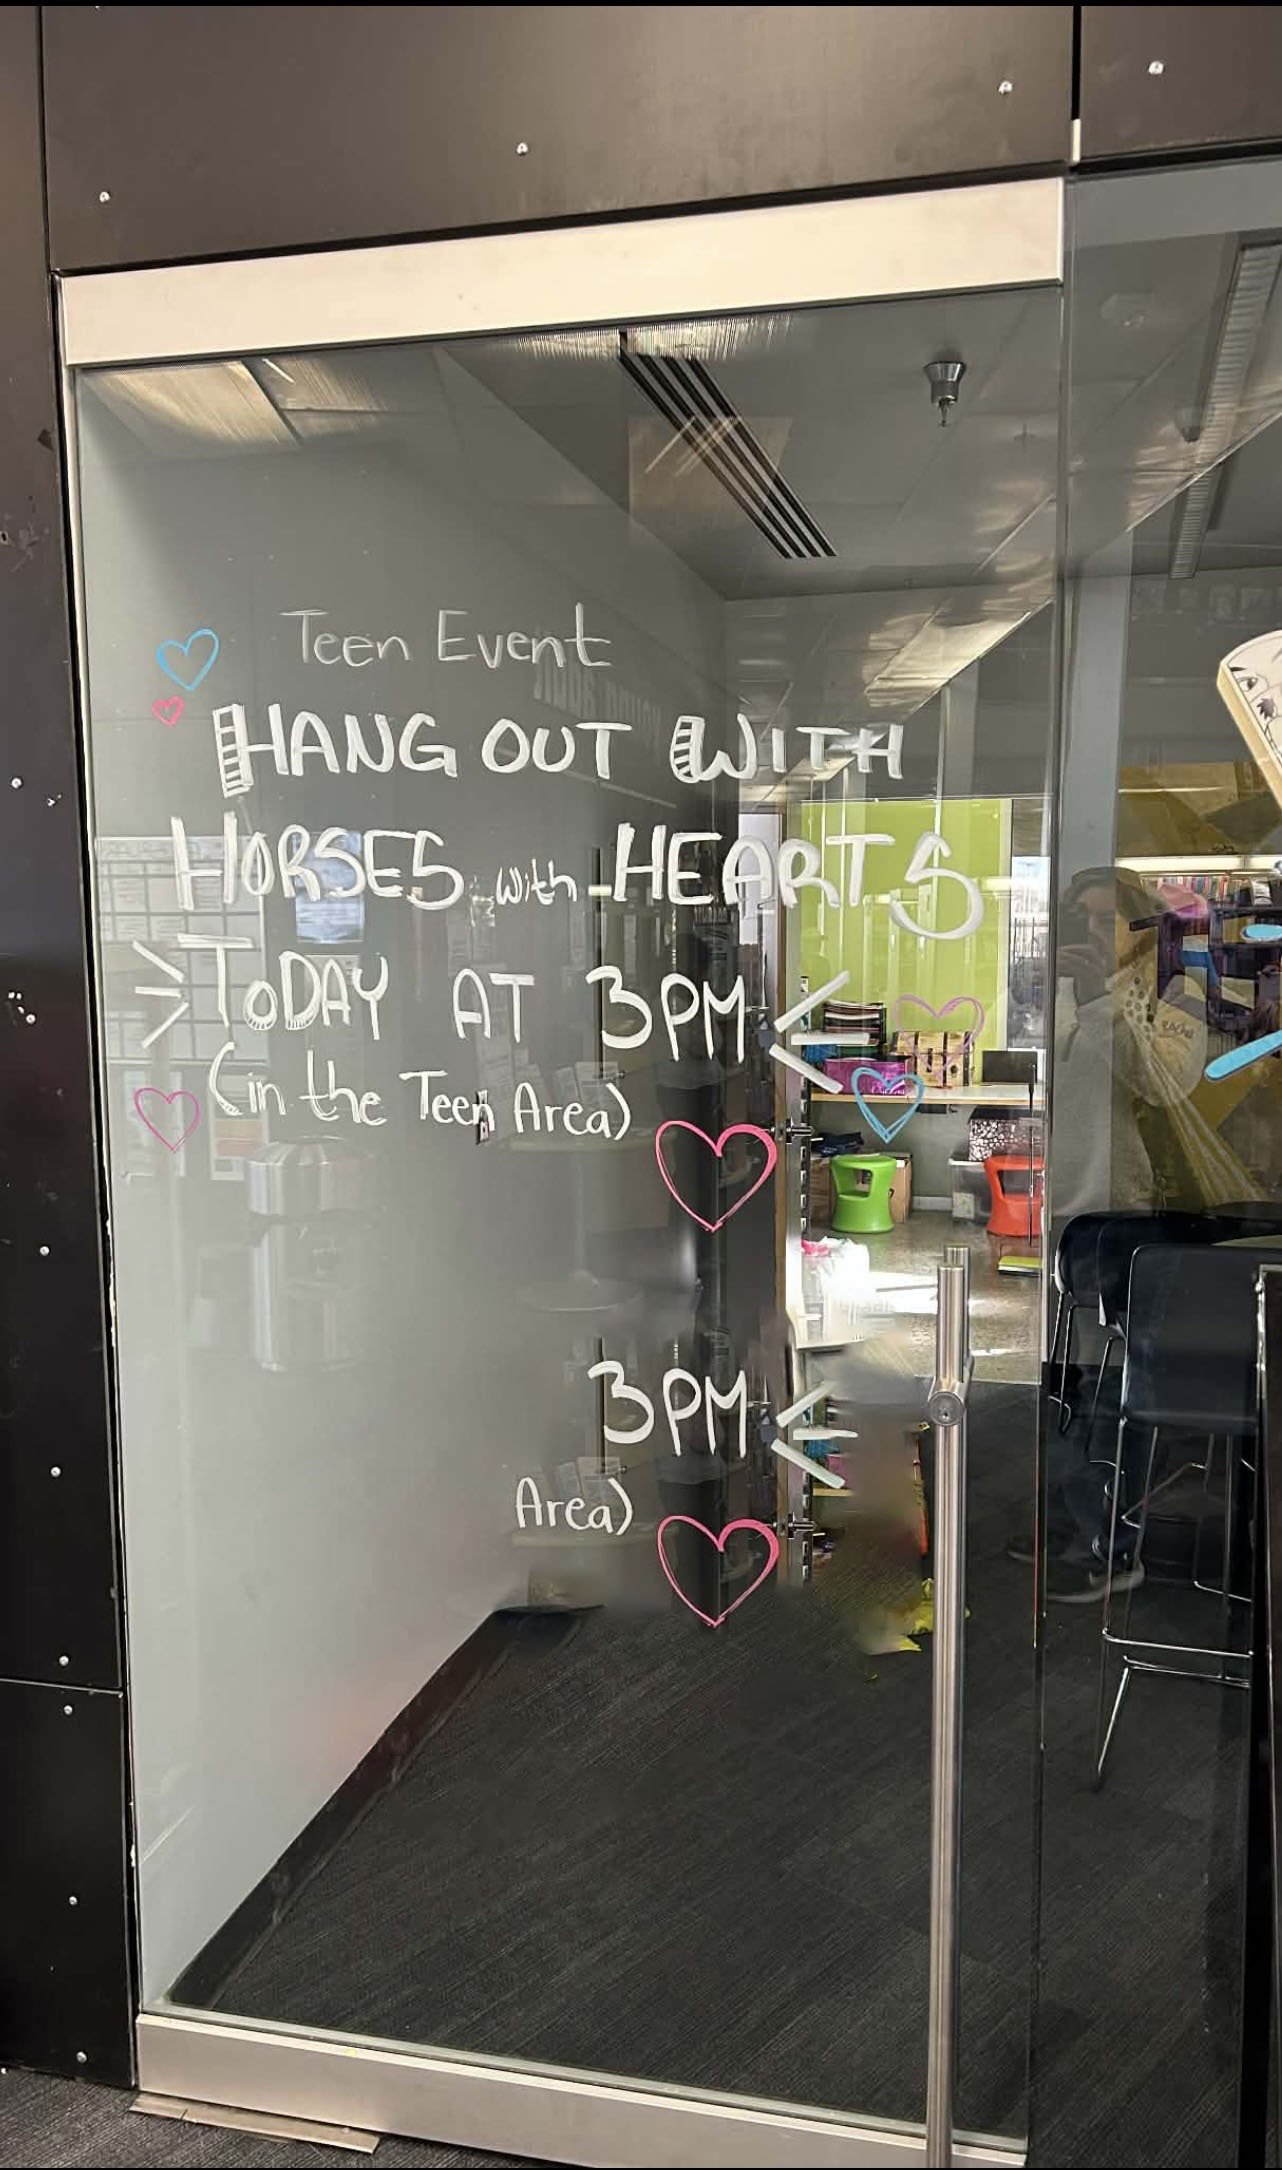 Teen Event
HANG OUT WITH
HORSES with HEARTS
TODAY AT 3PM
(in the Teen Area)
3PM
Area)